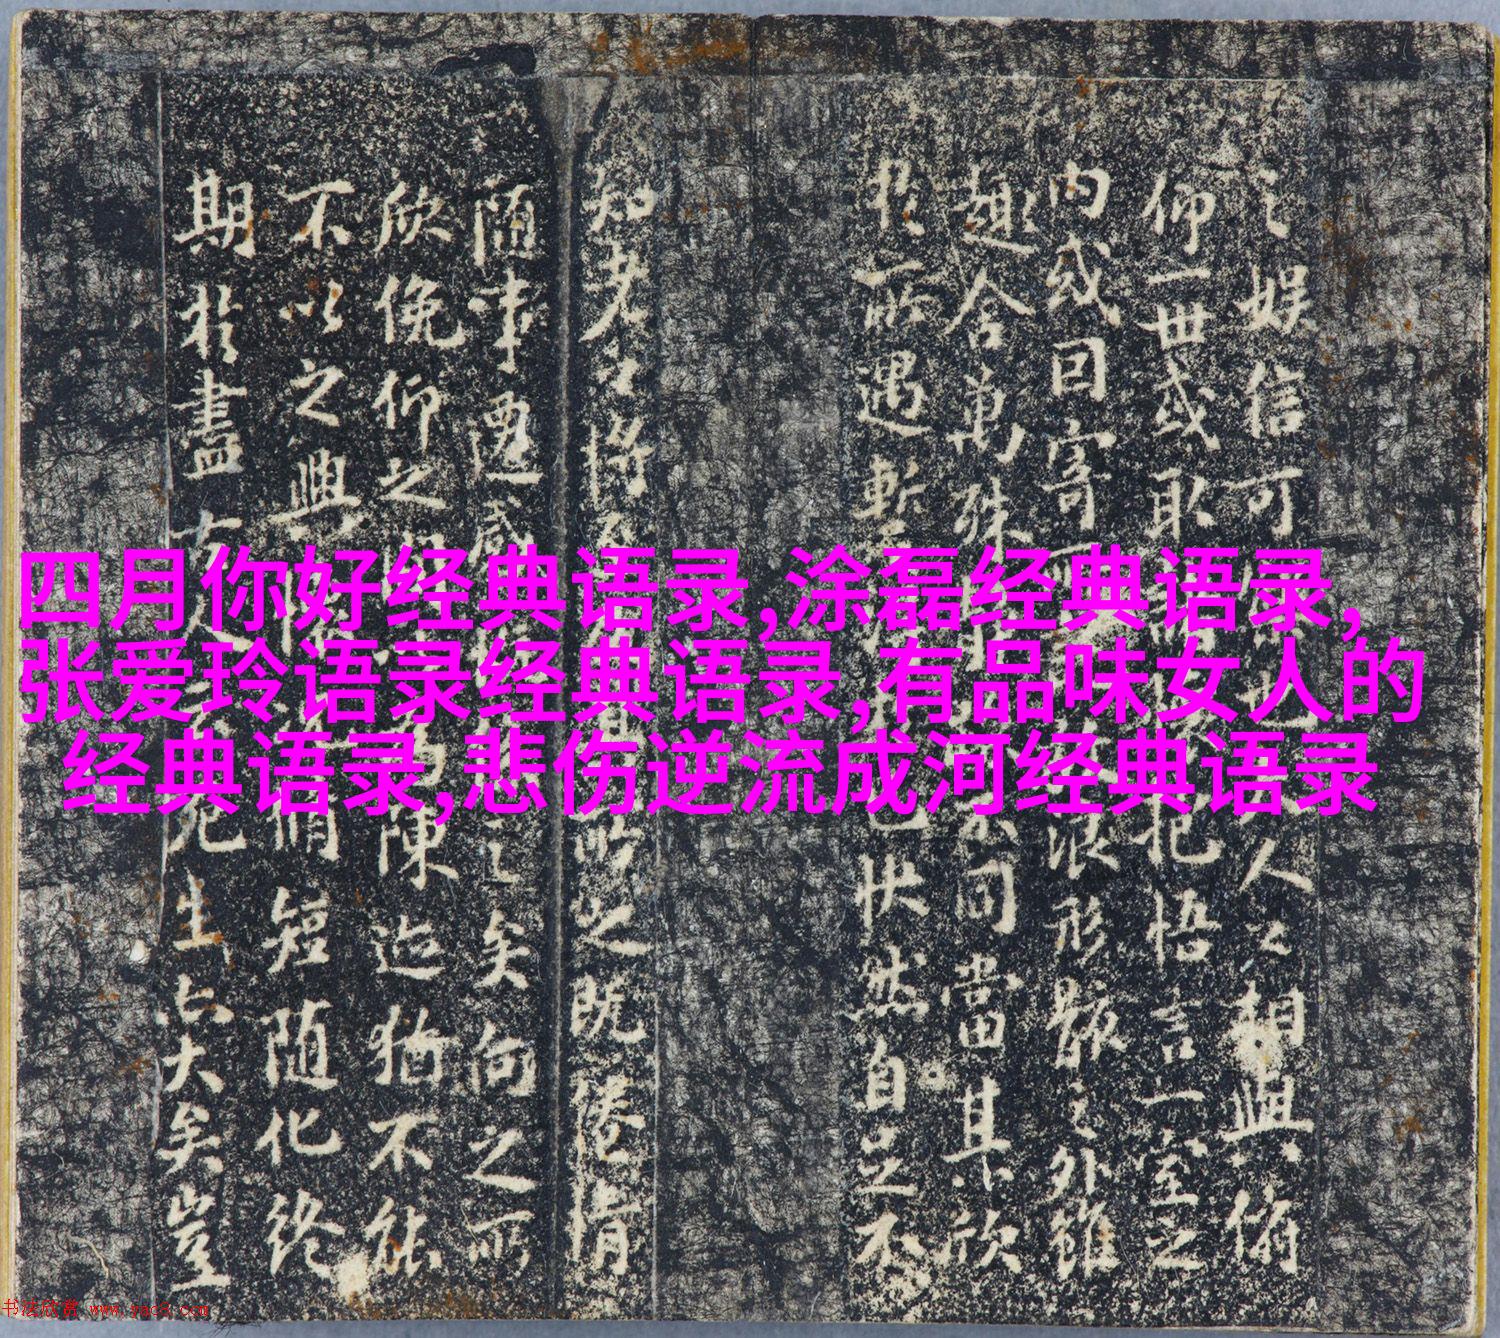 四月你好经典语录,涂磊经典语录,
张爱玲语录经典语录,有品味女人的
经典语录,悲伤逆流成河经典语录
之娱信可也人之相與俯
仰一世或取抱悟言一室之
内或因寄浪形骸之外雖
趣舍萬殊同當其欣
於所遇暫己快然自足不
知老之將至之既惓情
随事遷感之矣向之所
欣俛仰之陳迹猶不能
不以之興脩短随化終
期於盡古人死生亦大矣豈
书法欣赏 www.yac8.com